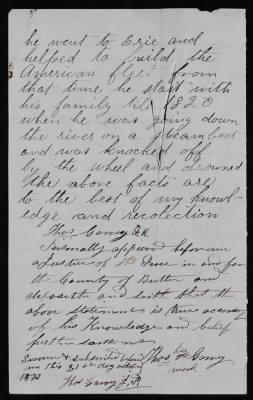 he went to Erie and
helped to build the
American fleet from
that time he staid with
his family till 1820
when he was going down
the river on a steamboat
and was knocked off
by the wheel and drowned
the above facts are
to the best of my know-
ledge and recolection
Thos
Personally appeared before me
a Justice of the Peace in and for
the County of Butler and
deposeth and saith that the
above statement is true according
of his Knowledge and belief
further saith not
Sworn & subscribed before
me this 21st day
1873
Thos his
mark
Thos J.P.